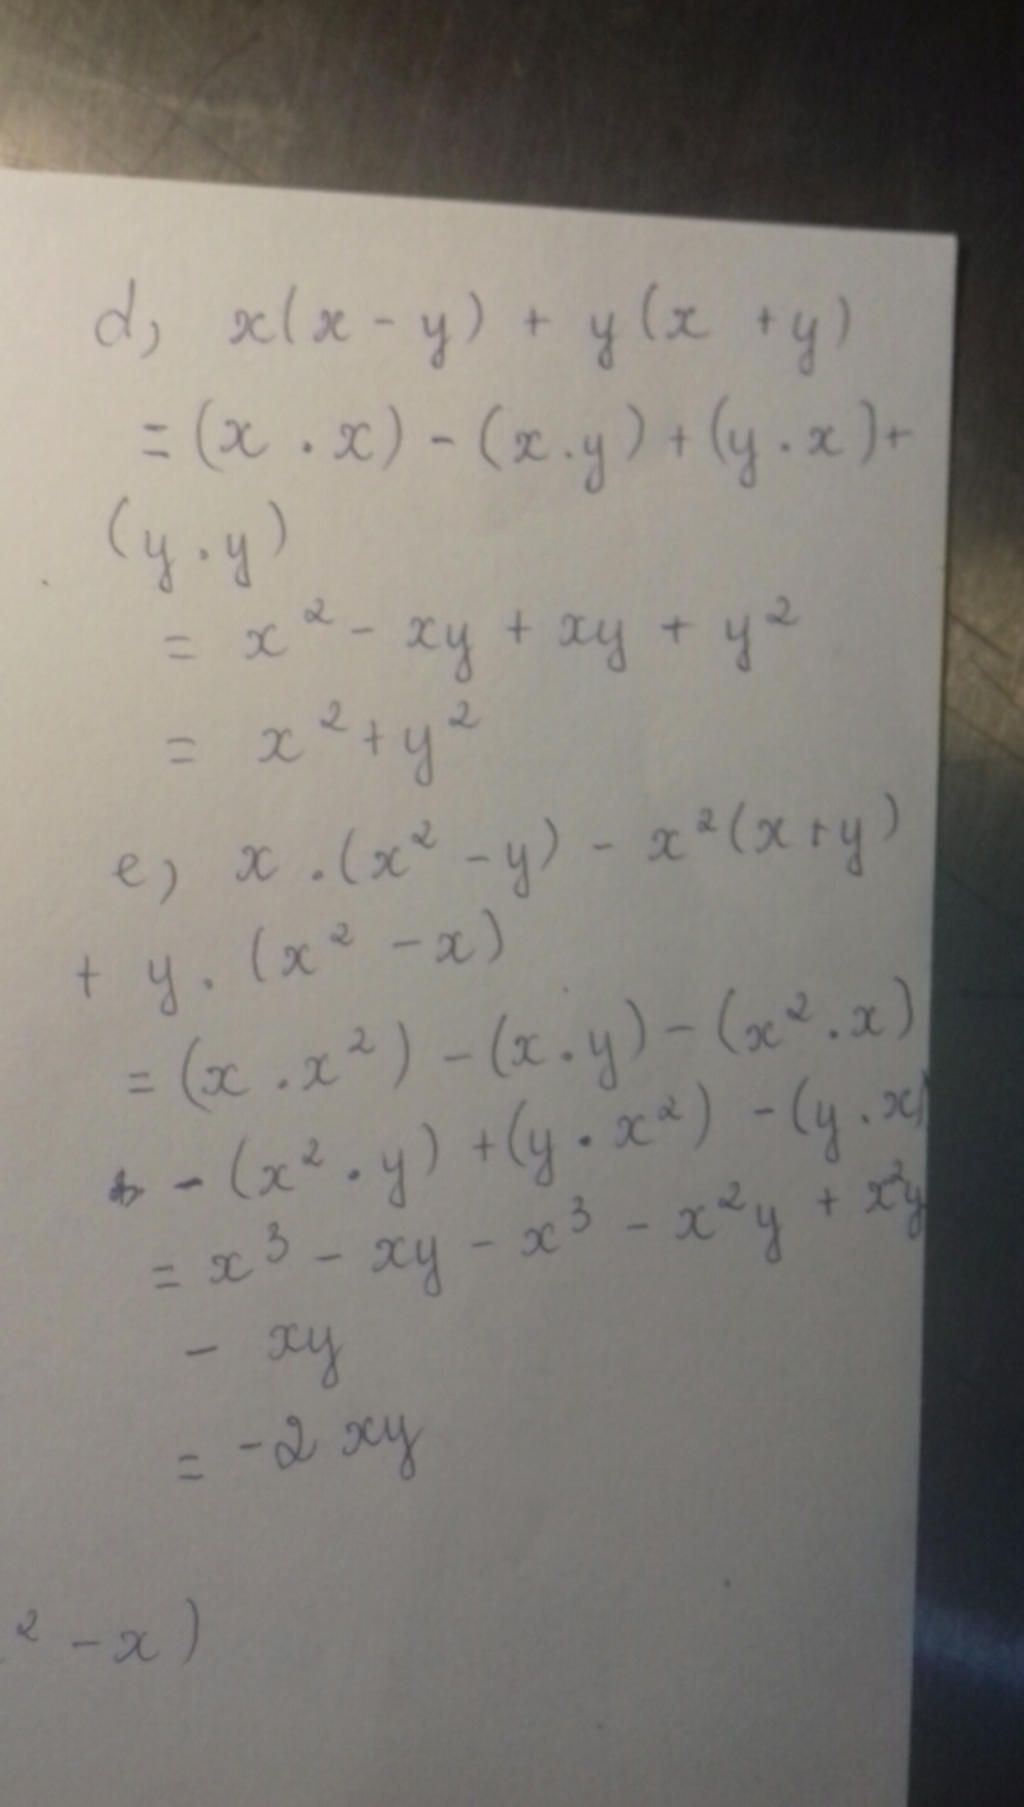 d, x(x - y) + y(x + y)
= (x . x) - (x.y) + (y.x) +
(y.y)
= x² - xy + xy + y²
= x² + y²
e, x .(x² - y) - x²(x+y)
+ y. (x² - x)
= (x . x²) - (x.y) - (x².x)
- (x².y) + (y.x²) - (y.x)
= x³ - xy - x³ - x²y + x²y
- xy
= -2xy
² - x)